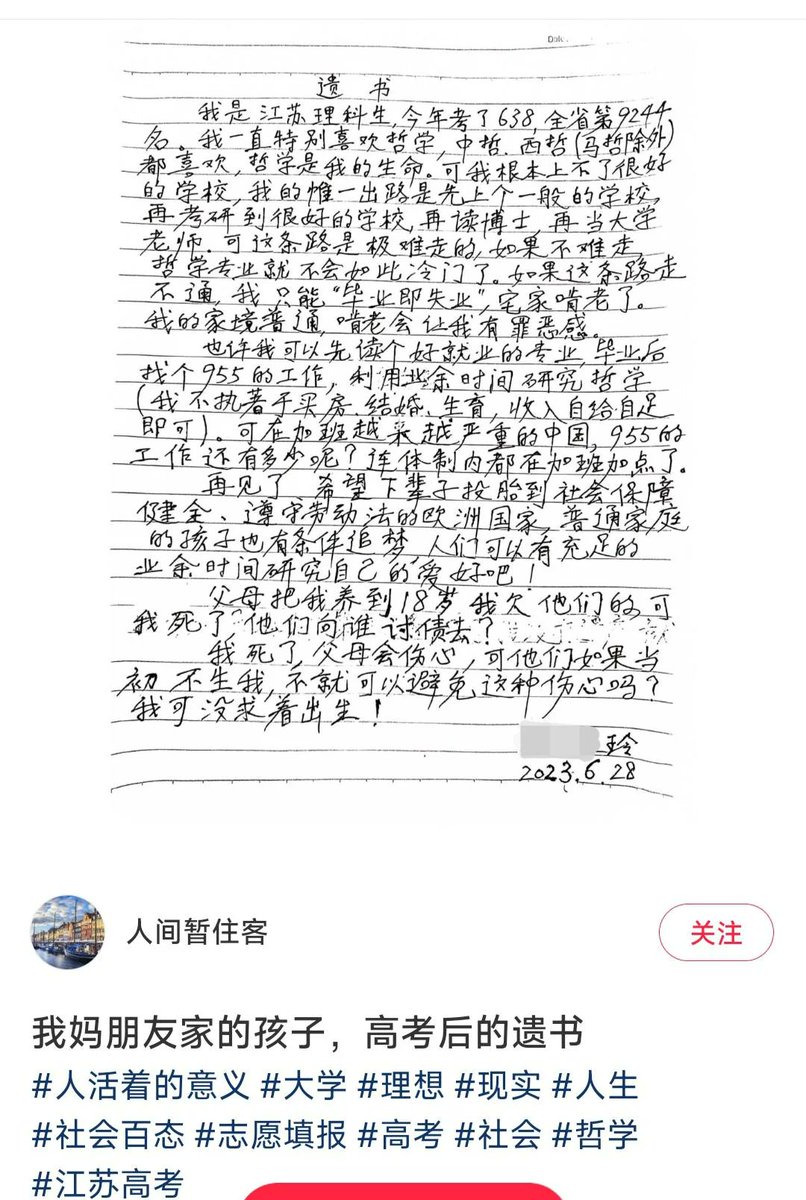 Date.
遗 书
我是江苏理科生,今年考了638,全省第9244
名。我一直特别喜欢哲学,中哲.西哲(马哲除外)
都喜欢,哲学是我的生命。可我根本上不了很好
的学校,我的惟一出路是先上个一般的学校,
再考研到很好的学校,再读博士,再当大学
老师.可这条路是极难走的,如果不难走
哲学专业就不会如此冷门了。如果这条路走
不通,我只能“毕业即失业”,宅家啃老了。
我的家境普通,啃老会让我有罪恶感。
也许我可以先读个好就业的专业,毕业后
找个955的工作,利用业余时间研究哲学
(我不执著于买房.结婚.生育,收入自给自足
即可)。可在加班越来越严重的中国,955的
工作还有多少呢?连体制内都在加班加点了。
再见了 希望下辈子投胎到社会保障
健全、遵守劳动法的欧洲国家,普通家庭
的孩子也有条件追梦,人们可以有充足的
业余时间研究自己的爱好吧!
父母把我养到18岁 我欠他们的,可
我死了,他们向谁讨债去?
我死了,父母会伤心,可他们如果当
初不生我,不就可以避免这种伤心吗?
我可没求着出生!
玲
2023.6.28
人间暂住客
关注
我妈朋友家的孩子,高考后的遗书
#人活着的意义 #大学 #理想 #现实 #人生
#社会百态 #志愿填报 #高考 #社会 #哲学
#江苏高考